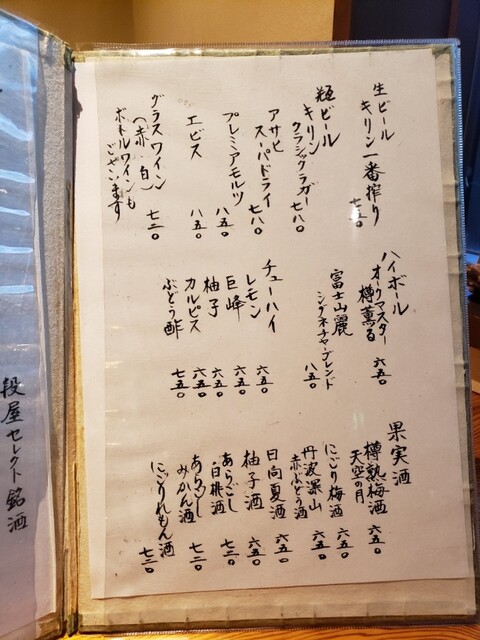 生ビール
キリン一番搾り
七五〇
瓶ビール
キリン
クラシックラガー
七八〇
アサヒ
スーパードライ
七八〇
プレミアモルツ
八五〇
エビス
八五〇
グラスワイン
(赤・白)
七二〇
ボトルワインも
ございます
ハイボール
オークマスター
樽薫る
六五〇
富士山麓
シグネチャーブレンド
八五〇
チューハイ
レモン
六五〇
巨峰
六五〇
柚子
六五〇
カルピス
六五〇
ぶどう酢
七五〇
果実酒
樽熟梅酒
天空の月
六五〇
にごり梅酒
六五〇
丹波深山
赤ぶどう酒
六五〇
日向夏酒
六五〇
柚子酒
六五〇
あらごし
白桃酒
七三〇
あらごし
みかん酒
七三〇
にごりれもん酒
七三〇
段屋セレクト銘酒